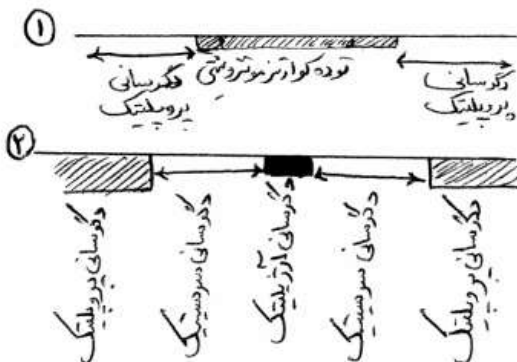 ۱
دگرسانی
پروپلیتیک
توده کوارتز مونزونیتی
دگرسانی
پروپلیتیک
۲
دگرسانی پروپلیتیک
دگرسانی سرسیتیک
دگرسانی آرژیلیتیک
دگرسانی سرسیتیک
دگرسانی پروپلیتیک